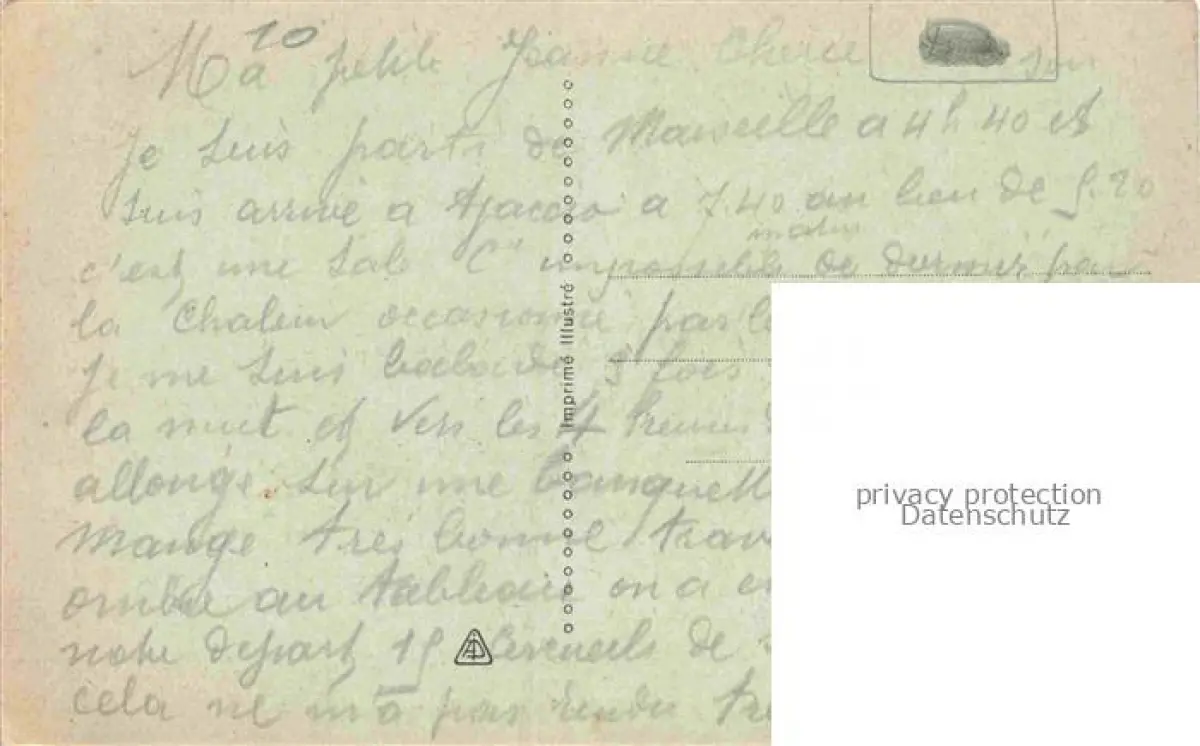 10
Ma petite Jeanne Cherie
Je suis parti de Marseille a 4h40 et
suis arrivé a Ajaccio a 7.40 au lieu de 5.20
matin
c'est une sale Cie impossible de dormir par
la chaleur occasionné par la
Je me suis balladé 3 fois
la nuit et vers les 4 heures
allongé sur une banquette
mangé tres bonne trav
ombre au tableau on a
notre depart 15 Cercueils de
cela ne m'a pas rendu
Imprimé Illustré
privacy protection
Datenschutz